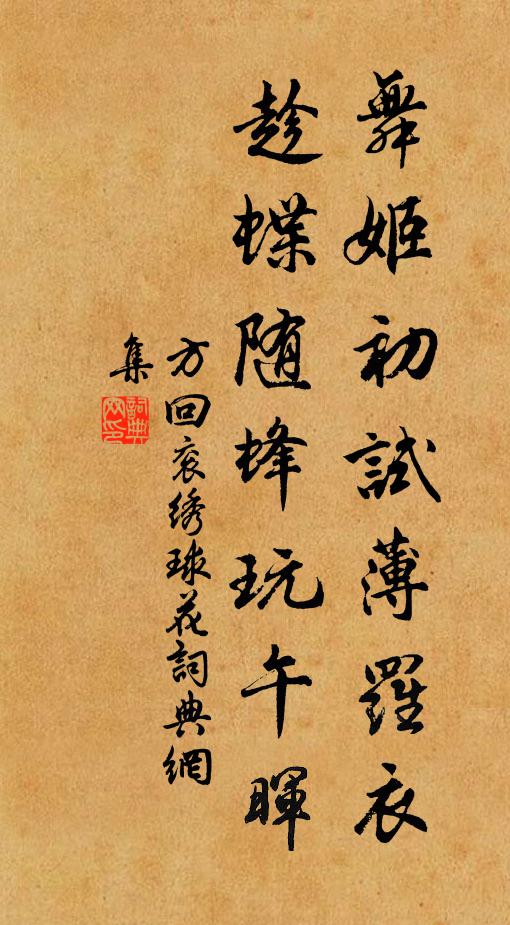 舞姬初試薄羅衣
趁蝶随蜂玩午暉
方回衮绣球花詞典網
集
詞典网印